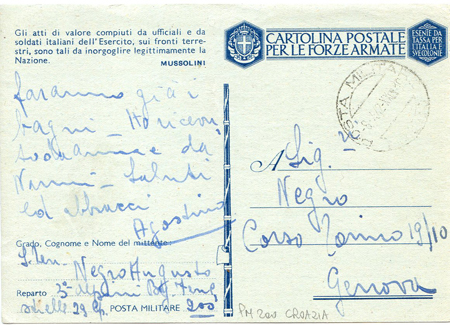 Gli atti di valore compiuti da ufficiali e da
soldati italiani dell'Esercito, sui fronti terre-
stri, sono tali da inorgoglire legittimamente la
Nazione.
MUSSOLINI
faranno già i
bagni - Ho ricevu
da
Nanni - Saluti
ed abbracci
Agostino
Grado, Cognome e Nome del mittente:
S.Ten. Negro Augusto
Reparto 3º Alpini
29 Cp. POSTA MILITARE 200
CARTOLINA POSTALE
PER LE FORZE ARMATE
ESENTE DA
TASSA PER
L'ITALIA E
SUE COLONIE
POSTA MILITARE
A Sig.
Negro
Corso Torino 19/10
Genova
PM 200 CROAZIA